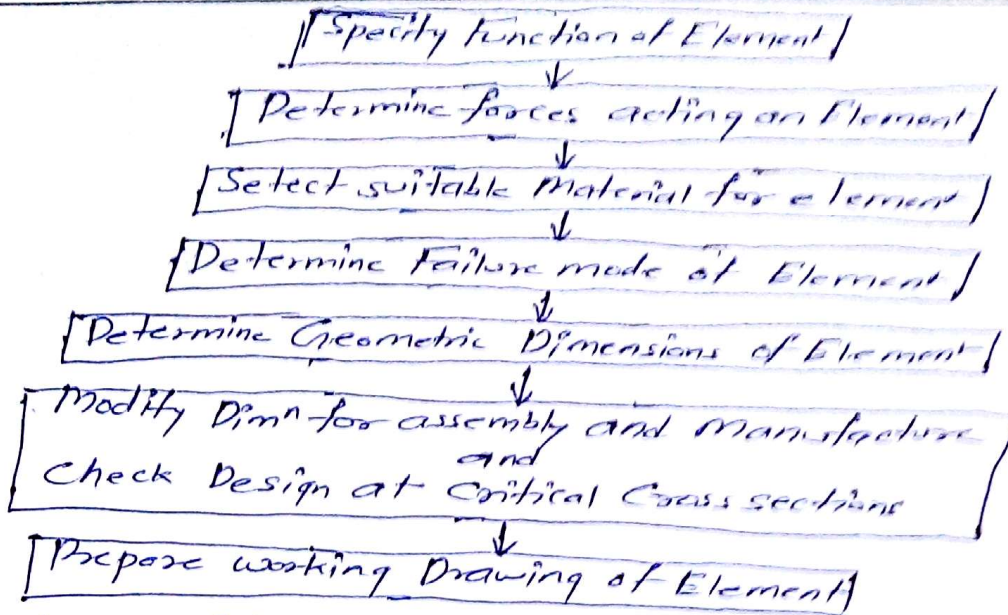 Specify Function of Element
Determine forces acting on Element
Select suitable Material for element
Determine Failure mode of Element
Determine Geometric Dimensions of Element
Modify Dimⁿ for assembly and Manufacture
and
Check Design at Critical Cross sections
Prepare working Drawing of Element